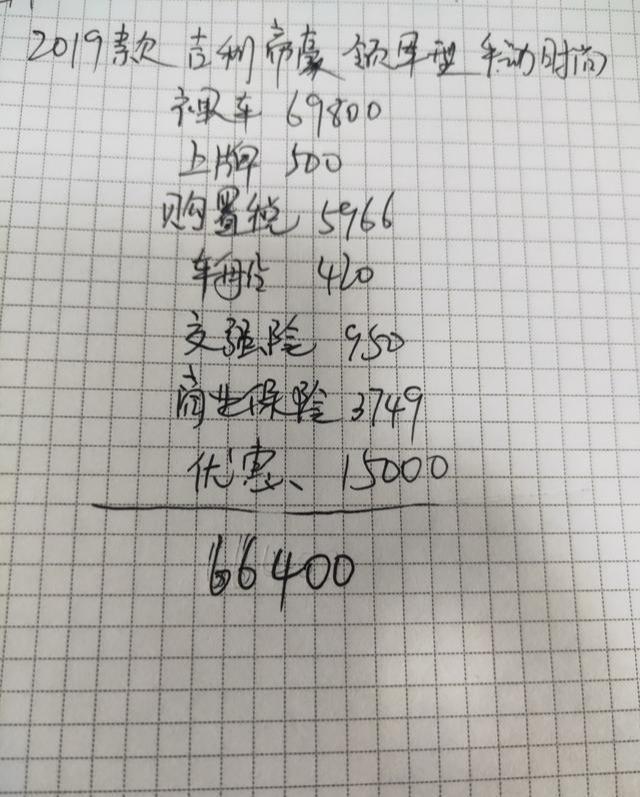 2019款 吉利帝豪 领军型 手动时尚
裸车 69800
上牌 500
购置税 5966
车船台 420
交强险 950
商业保险 3749
优惠、 15000
66400